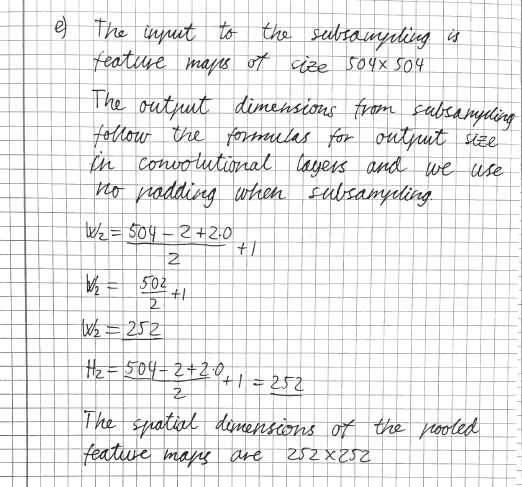 e) The input to the subsampling is
feature maps of size 504x504
The output dimensions from subsampling
follow the formulas for output size
in convolutional layers and we use
no padding when subsampling.
W₂ = (504 - 2 + 2·0)/2 + 1
W₂ = 502/2 + 1
W₂ = 252
H₂ = (504 - 2 + 2·0)/2 + 1 = 252
The spatial dimensions of the pooled
feature maps are 252x252